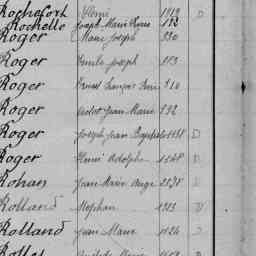 Rochefort Henri 1919 D
Rochelle Joseph Marie Pierre 172
Roger Marie Joseph 930
Roger Emile Joseph 113
Roger Ernest François René 310
Roger Victor Jean Marie 192
Roger Joseph Jean Baptiste 1138 D
Roger Henri Adolphe 1148 D
Rohan Jean Marie Ange D
Rolland Stéphan D
Rolland Jean Marie 1124 D